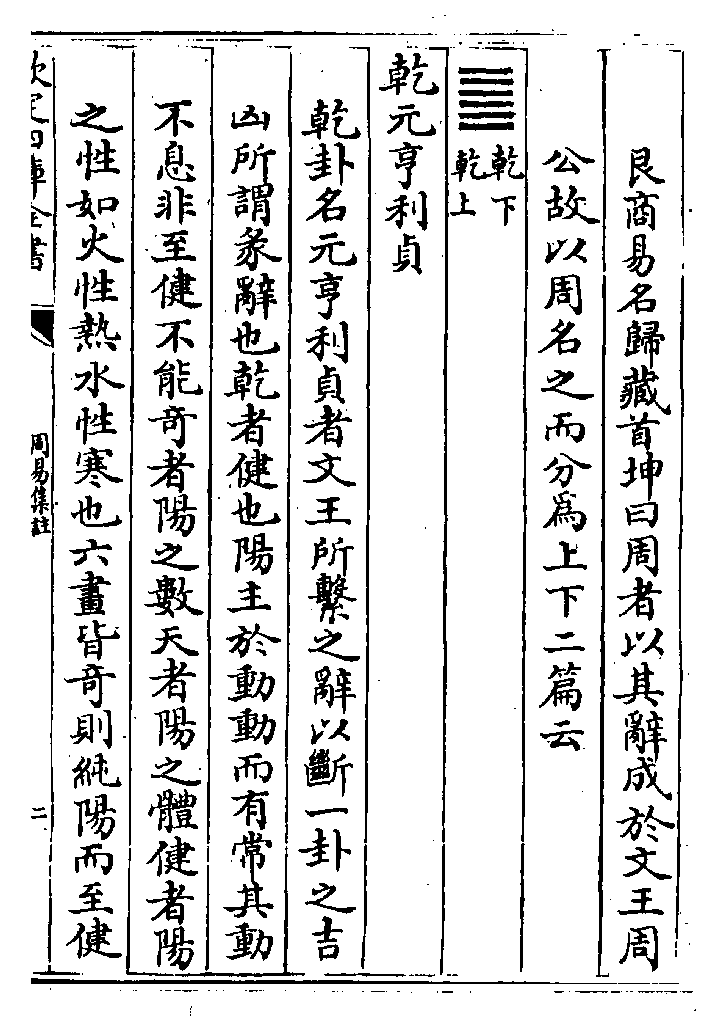 艮商易名歸藏首坤曰周者以其辭成於文王周
公故以周名之而分爲上下二篇云
乾下
乾上
乾元亨利貞
乾卦名元亨利貞者文王所繫之辭以斷一卦之吉
凶所謂彖辭也乾者健也陽主於動動而有常其動
不息非至健不能奇者陽之數天者陽之體健者陽
之性如火性熱水性寒也六畫皆奇則純陽而至健
欽定四庫全書
周易集註
二